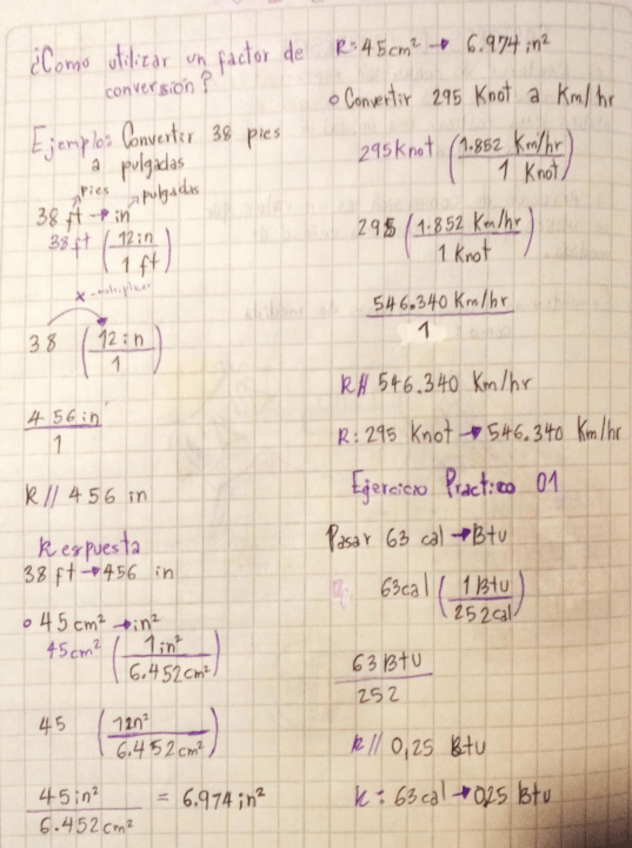 ¿Como utilizar un factor de
conversión?
Ejemplo: Convertir 38 pies
a pulgadas
pies pulgadas
38 ft → in
38 ft (12 in / 1 ft)
x
38 (12 in / 1)
456 in / 1
R// 456 in
Respuesta
38 ft → 456 in
○ 45 cm² → in²
45 cm² (1 in² / 6.452 cm²)
45 (1in² / 6.452 cm²)
45 in² / 6.452 cm² = 6.974 in²
R: 45 cm² → 6.974 in²
○ Convertir 295 Knot a Km/hr
295 Knot (1.852 Km/hr / 1 Knot)
295 (1.852 Km/hr / 1 Knot)
546.340 Km/hr / 1
R// 546.340 Km/hr
R: 295 Knot → 546.340 Km/hr
Ejercicio Practico 01
Pasar 63 cal → Btu
63 cal (1 Btu / 252 cal)
63 Btu / 252
R// 0,25 Btu
R: 63 cal → 025 Btu